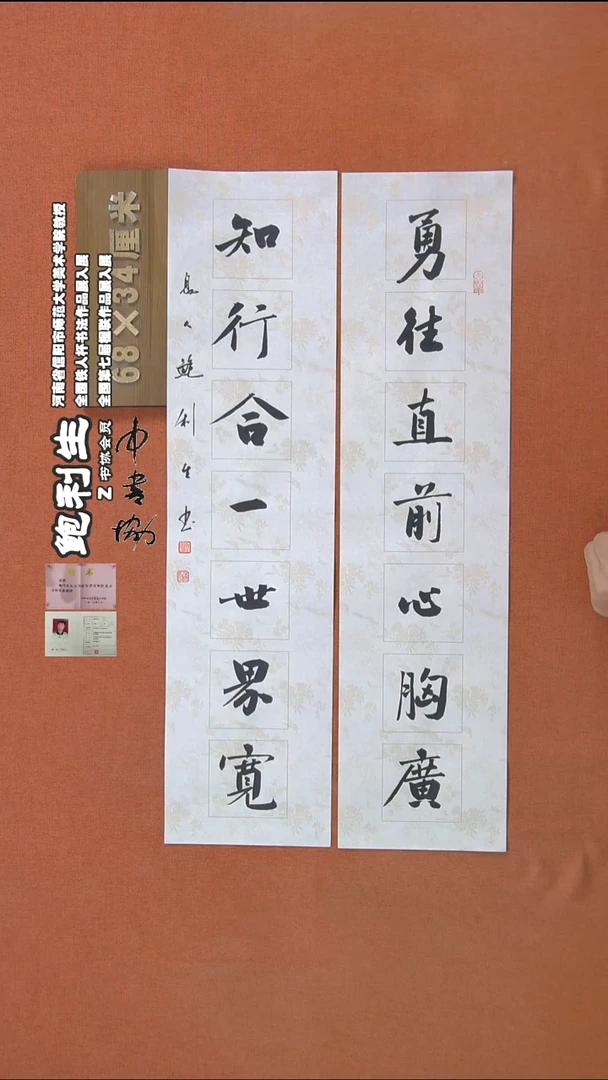 勇往直前心胸廣
知行合一世界寬
鮑利生书
68×34厘米
河南省信阳市师范大学美术学院教授
全国铁人杯书法作品展入展
全国第七届楹联作品展入展
鲍利生
Z 书协会员
中书协